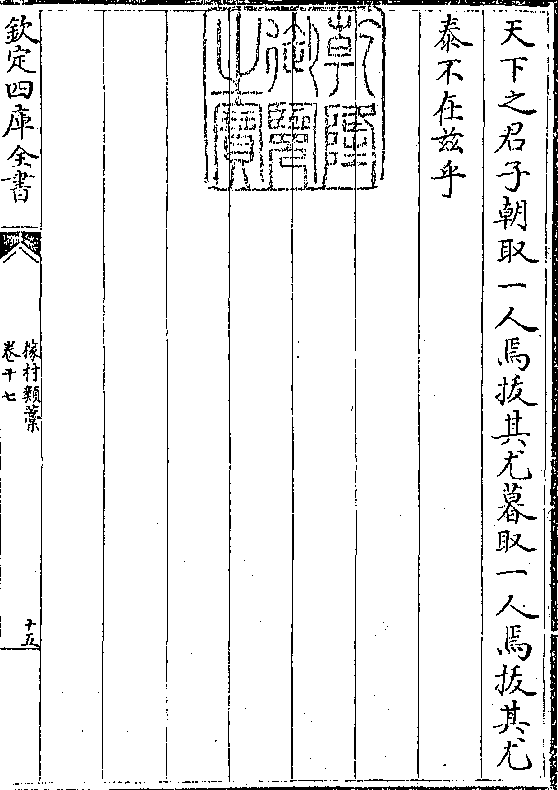 天下之君子朝取一人焉拔其尤暮取一人焉拔其尤
泰不在兹乎
乾隆御覽之寶
欽定四庫全書
稼村類藁
卷十七
十五